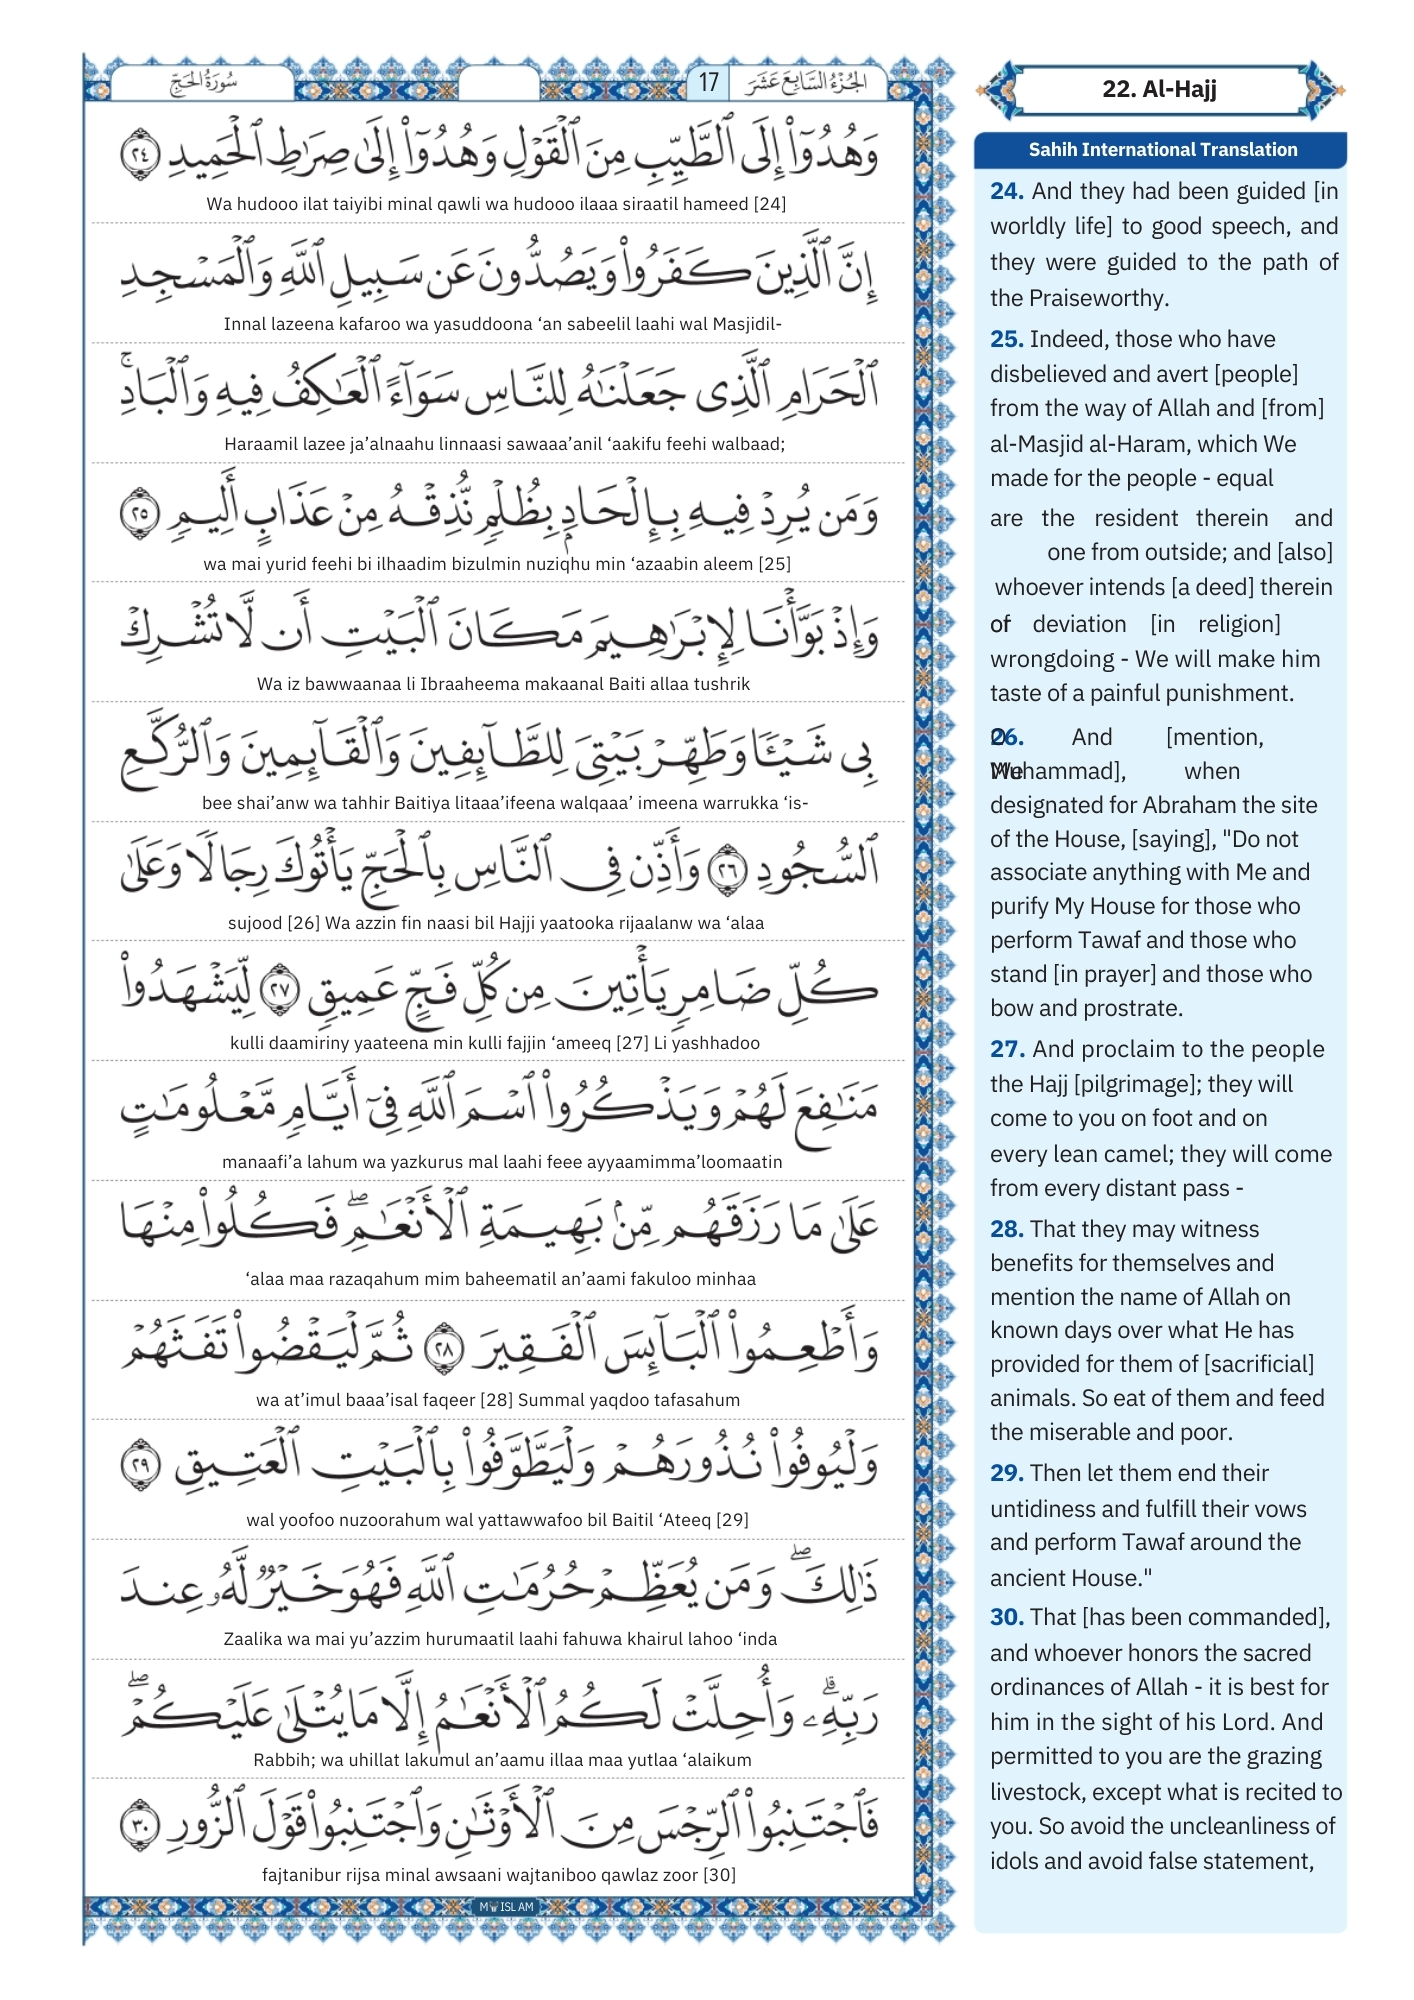 سُورَةُ الحَجّ
17
الجُزْءُ السَّابِعَ عَشَرَ
وَهُدُوٓا۟ إِلَى ٱلطَّيِّبِ مِنَ ٱلْقَوْلِ وَهُدُوٓا۟ إِلَىٰ صِرَٰطِ ٱلْحَمِيدِ ٢٤
Wa hudooo ilat taiyibi minal qawli wa hudooo ilaaa siraatil hameed [24]
إِنَّ ٱلَّذِينَ كَفَرُوا۟ وَيَصُدُّونَ عَن سَبِيلِ ٱللَّهِ وَٱلْمَسْجِدِ
Innal lazeena kafaroo wa yasuddoona ‘an sabeelil laahi wal Masjidil-
ٱلْحَرَامِ ٱلَّذِى جَعَلْنَٰهُ لِلنَّاسِ سَوَآءً ٱلْعَٰكِفُ فِيهِ وَٱلْبَادِ ۚ
Haraamil lazee ja’alnaahu linnaasi sawaaa’anil ‘aakifu feehi walbaad;
وَمَن يُرِدْ فِيهِ بِإِلْحَادٍۭ بِظُلْمٍ نُّذِقْهُ مِنْ عَذَابٍ أَلِيمٍ ٢٥
wa mai yurid feehi bi ilhaadim bizulmin nuziqhu min ‘azaabin aleem [25]
وَإِذْ بَوَّأْنَا لِإِبْرَٰهِيمَ مَكَانَ ٱلْبَيْتِ أَن لَّا تُشْرِكْ
Wa iz bawwaanaa li Ibraaheema makaanal Baiti allaa tushrik
بِى شَيْـًٔا وَطَهِّرْ بَيْتِىَ لِلطَّآئِفِينَ وَٱلْقَآئِمِينَ وَٱلرُّكَّعِ
bee shai’anw wa tahhir Baitiya litaaa’ifeena walqaaa’ imeena warrukka ‘is-
ٱلسُّجُودِ ٢٦ وَأَذِّن فِى ٱلنَّاسِ بِٱلْحَجِّ يَأْتُوكَ رِجَالًا وَعَلَىٰ
sujood [26] Wa azzin fin naasi bil Hajji yaatooka rijaalanw wa ‘alaa
كُلِّ ضَامِرٍ يَأْتِينَ مِن كُلِّ فَجٍّ عَمِيقٍ ٢٧ لِّيَشْهَدُوا۟
kulli daamiriny yaateena min kulli fajjin ‘ameeq [27] Li yashhadoo
مَنَٰفِعَ لَهُمْ وَيَذْكُرُوا۟ ٱسْمَ ٱللَّهِ فِىٓ أَيَّامٍ مَّعْلُومَٰتٍ
manaafi’a lahum wa yazkurus mal laahi feee ayyaamimma’loomaatin
عَلَىٰ مَا رَزَقَهُم مِّنۢ بَهِيمَةِ ٱلْأَنْعَٰمِ ۖ فَكُلُوا۟ مِنْهَا
‘alaa maa razaqahum mim baheematil an’aami fakuloo minhaa
وَأَطْعِمُوا۟ ٱلْبَآئِسَ ٱلْفَقِيرَ ٢٨ ثُمَّ لْيَقْضُوا۟ تَفَثَهُمْ
wa at’imul baaa’isal faqeer [28] Summal yaqdoo tafasahum
وَلْيُوفُوا۟ نُذُورَهُمْ وَلْيَطَّوَّفُوا۟ بِٱلْبَيْتِ ٱلْعَتِيقِ ٢٩
wal yoofoo nuzoorahum wal yattawwafoo bil Baitil ‘Ateeq [29]
ذَٰلِكَ ۖ وَمَن يُعَظِّمْ حُرُمَٰتِ ٱللَّهِ فَهُوَ خَيْرٌ لَّهُۥ عِندَ
Zaalika wa mai yu’azzim hurumaatil laahi fahuwa khairul lahoo ‘inda
رَبِّهِۦ ۗ وَأُحِلَّتْ لَكُمُ ٱلْأَنْعَٰمُ إِلَّا مَا يُتْلَىٰ عَلَيْكُمْ ۖ
Rabbih; wa uhillat lakumul an’aamu illaa maa yutlaa ‘alaikum
فَٱجْتَنِبُوا۟ ٱلرِّجْسَ مِنَ ٱلْأَوْثَٰنِ وَٱجْتَنِبُوا۟ قَوْلَ ٱلزُّورِ ٣٠
fajtanibur rijsa minal awsaani wajtaniboo qawlaz zoor [30]
MY ISLAM
22. Al-Hajj
Sahih International Translation
24. And they had been guided [in
worldly life] to good speech, and
they were guided to the path of
the Praiseworthy.
25. Indeed, those who have
disbelieved and avert [people]
from the way of Allah and [from]
al-Masjid al-Haram, which We
made for the people - equal
are the resident therein and
one from outside; and [also]
whoever intends [a deed] therein
of deviation [in religion]
wrongdoing - We will make him
taste of a painful punishment.
26. And [mention, O
Muhammad], when We
designated for Abraham the site
of the House, [saying], "Do not
associate anything with Me and
purify My House for those who
perform Tawaf and those who
stand [in prayer] and those who
bow and prostrate.
27. And proclaim to the people
the Hajj [pilgrimage]; they will
come to you on foot and on
every lean camel; they will come
from every distant pass -
28. That they may witness
benefits for themselves and
mention the name of Allah on
known days over what He has
provided for them of [sacrificial]
animals. So eat of them and feed
the miserable and poor.
29. Then let them end their
untidiness and fulfill their vows
and perform Tawaf around the
ancient House."
30. That [has been commanded],
and whoever honors the sacred
ordinances of Allah - it is best for
him in the sight of his Lord. And
permitted to you are the grazing
livestock, except what is recited to
you. So avoid the uncleanliness of
idols and avoid false statement,